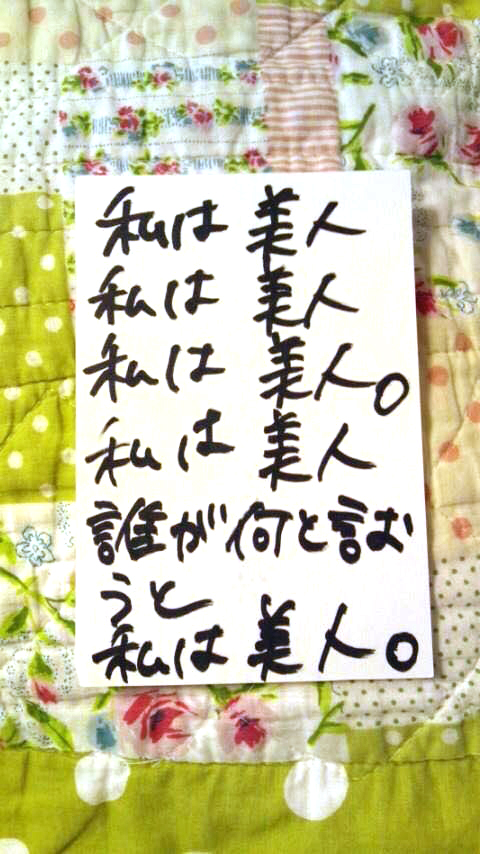 私は 美人
私は 美人
私は 美人。
私は 美人
誰が何と言お
うと
私は 美人。